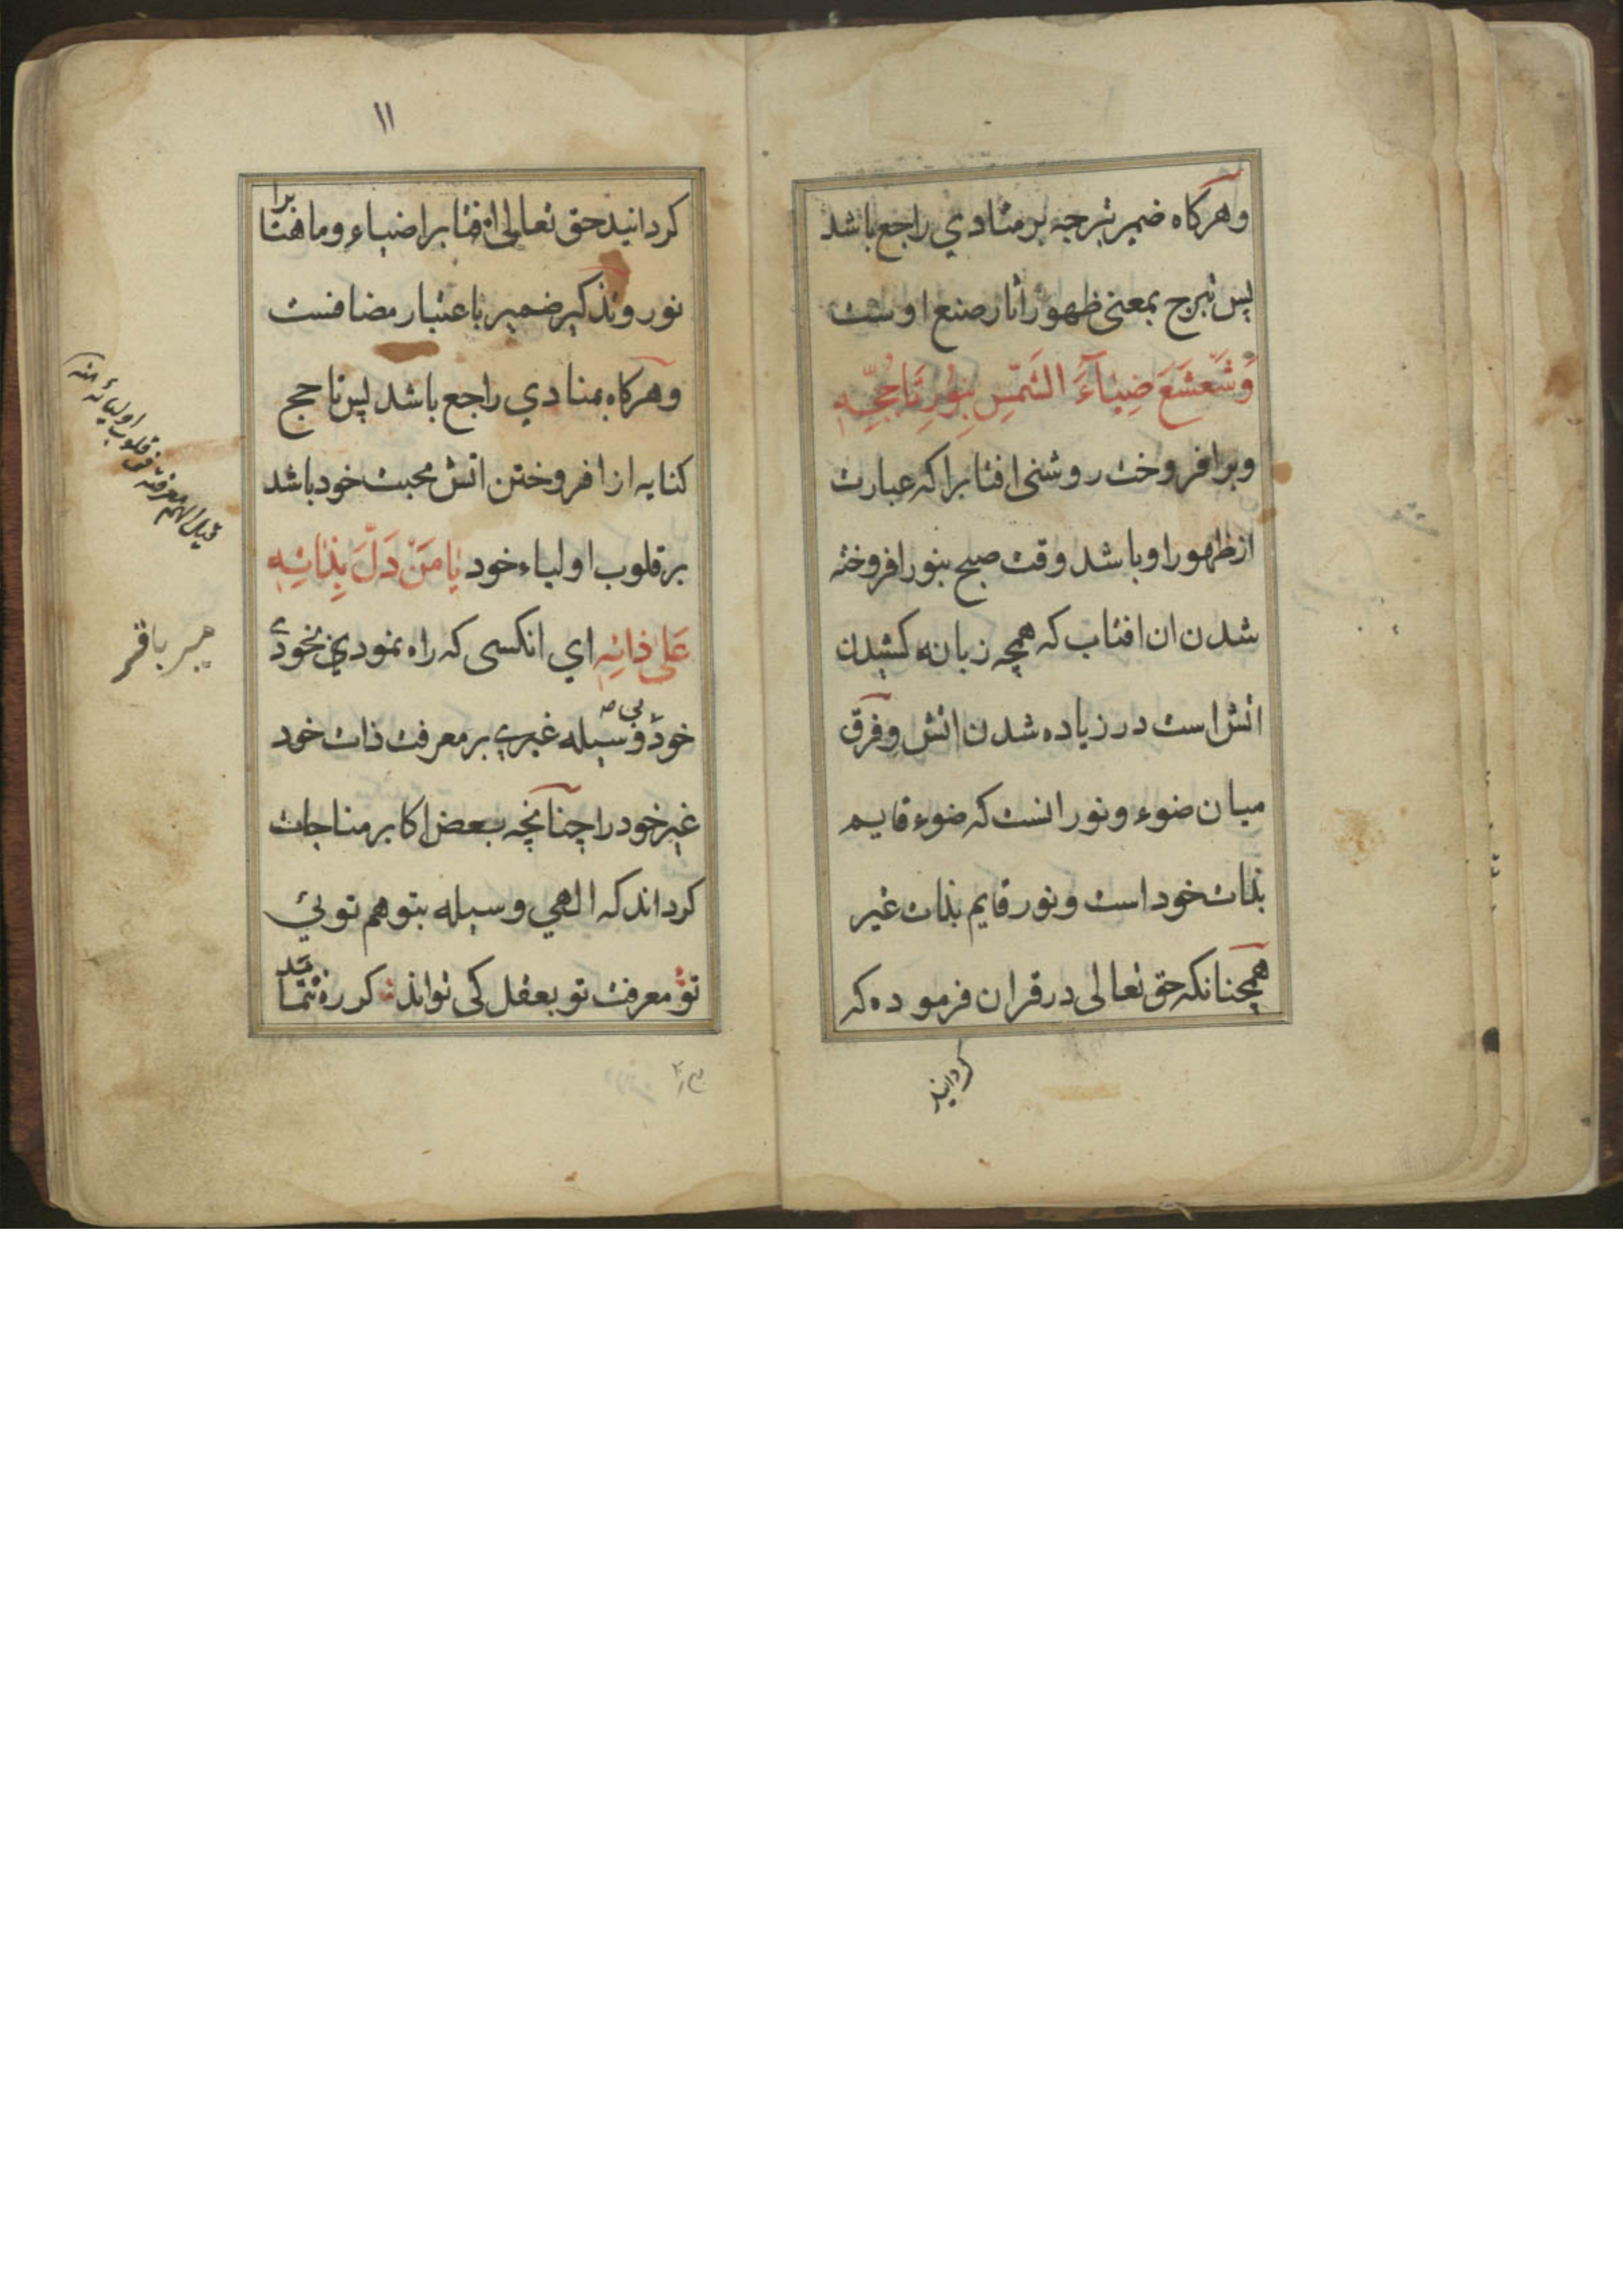 وهرکاه ضمیر تبرجه بر منادي راجع باشد
پس تبرج بمعنی ظهور اثار صنع اوست
وَشَعْشَعَ ضِیٰآءَ الشَّمْسِ بِنُورِ تَاَجُّجِهِ
وبرافروخت روشنی افتابرا که عبارت
از ظهور او باشد وقت صبح بنور افروخته
شدن ان افتاب که همچه زبانه کشیدن
اتش است در زیاده شدن اتش وفرق
میان ضوء ونور انست که ضوء قایم
بذات خود است ونور قایم بذات غیر
همچنانکه حق تعالی در قران فرموده که
کردانید
۱۱
کردانید حق تعالی افتابرا ضیاء وماهتابرا
نور وتذکیر ضمیر باعتبار مضافست
وهرکاه بمنادي راجع باشد پس تاجج
کنایه از افروختن اتش محبت خود باشد
بر قلوب اولیاء خود یٰا مَنْ دَلَّ بِذٰاتِهِ
عَلیٰ ذاتِهِ اي انکسی که راه نمودي بخودی
خود بی وسیله غیري بر معرفت ذات خود
غیر خود را چنانچه بعض اکابر مناجات
کرداند که الهي وسیله بتو هم توئي
تو معرفت تو بعقل کی تواند کر ره ننماید
قلوب اولیائه منه
میر باقر